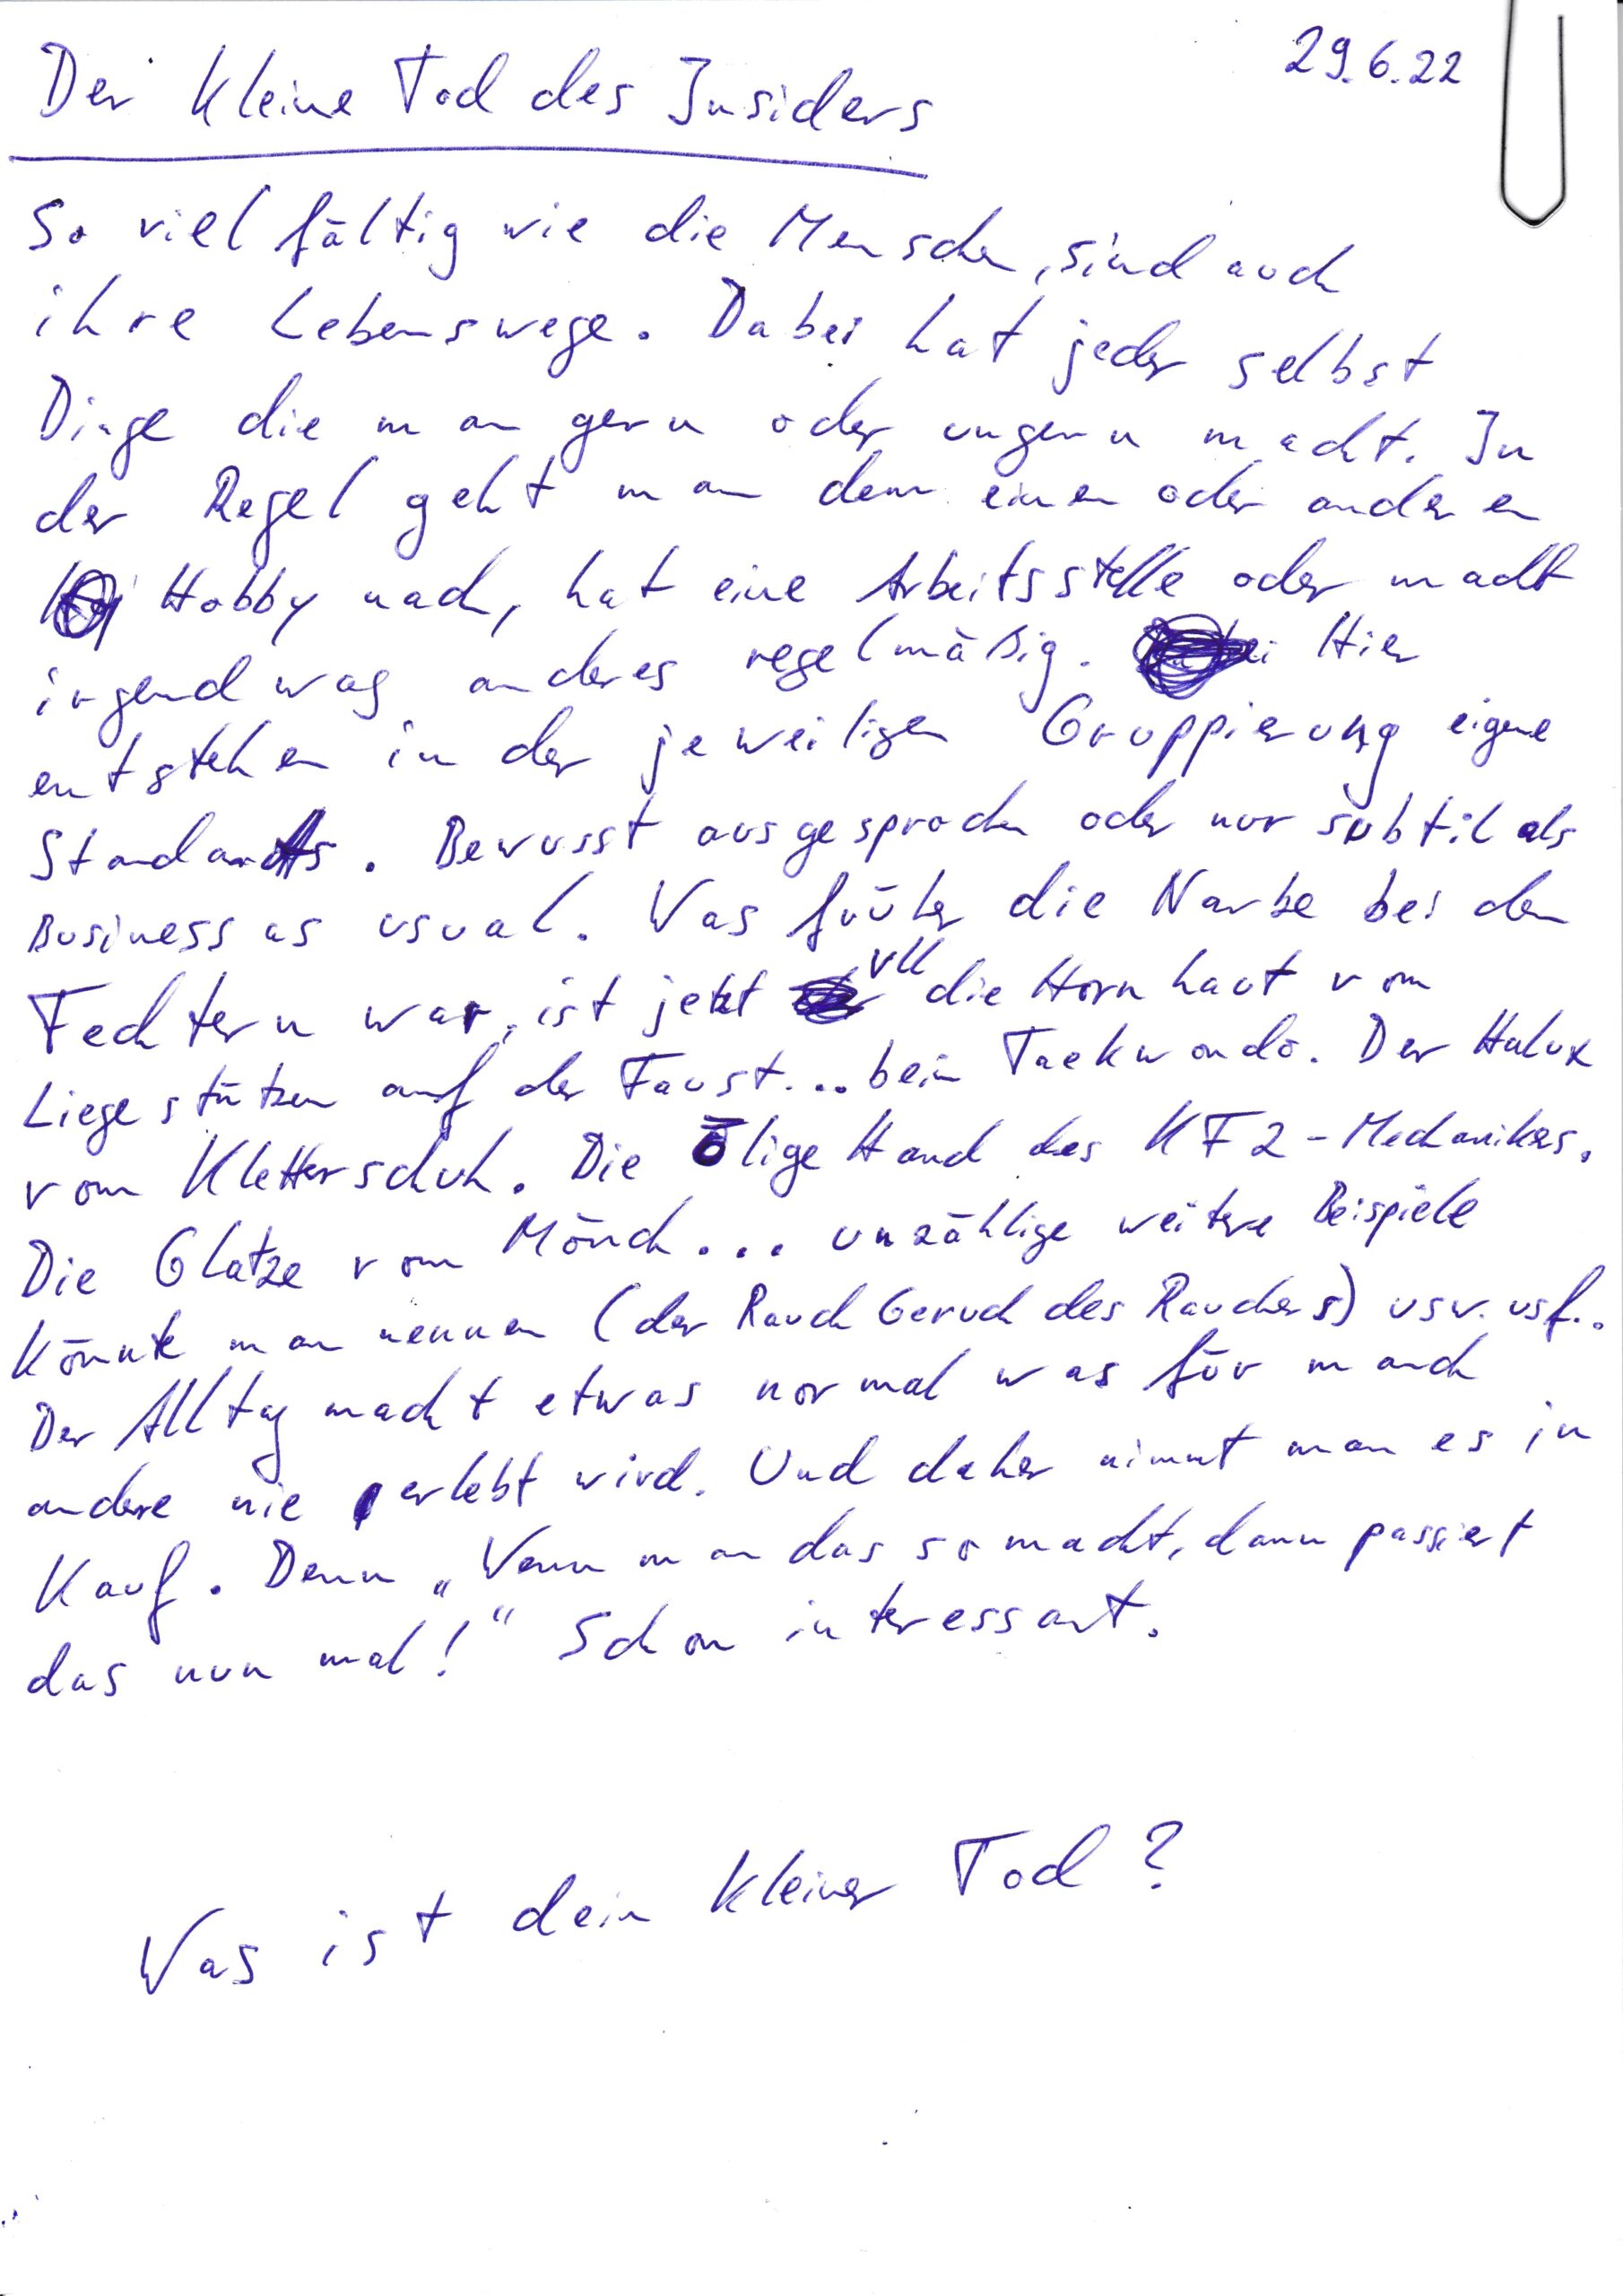 29.6.22
Der kleine Tod des Insiders
So vielfältig wie die Menschen, sind auch
ihre Lebenswege. Dabei hat jeder selbst
Dinge die man gern oder ungern macht. In
der Regel geht man dem einen oder anderen
Hobby nach, hat eine Arbeitsstelle oder macht
irgendwas anderes regelmäßig. Hier
entstehen in der jeweiligen Gruppierung eigene
Standards. Bewusst ausgesprochen oder nur subtil als
Business as usual. Was früher die Narbe bei den
Fechtern war, ist jetzt vll die Hornhaut vom
Liegestützen auf der Faust... beim Taekwondo. Der Halux
vom Kletterschuh. Die Ölige Hand des KFZ-Mechanikers.
Die Glatze vom Mönch... unzählige weitere Beispiele
könnte man nennen (der Rauch Geruch des Rauchers) usw. usf..
Der Alltag macht etwas normal was für manch
andere nie erlebt wird. Und daher nimmt man es in
Kauf. Denn „Wenn man das so macht, dann passiert
das nun mal!“ Schon interessant.
Was ist dein kleiner Tod?